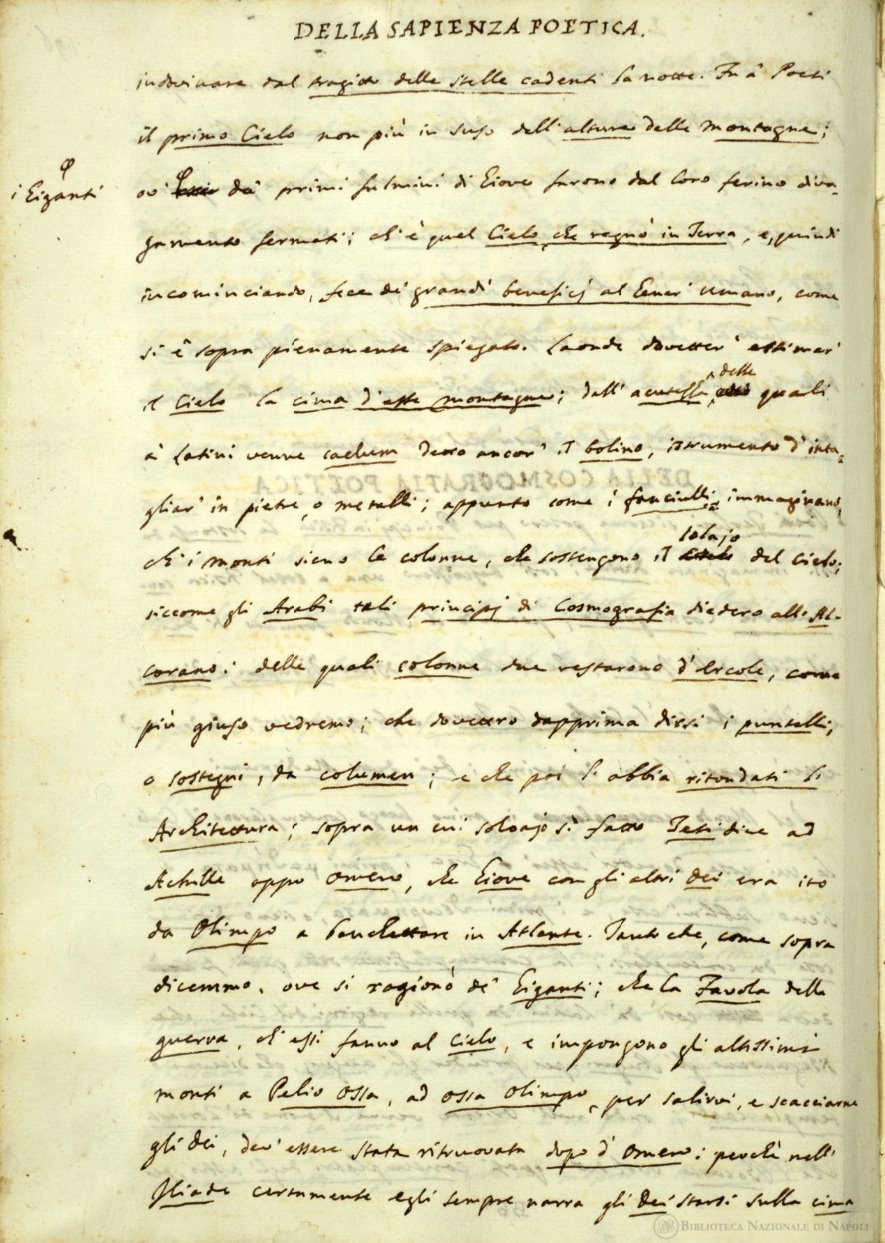 DELLA SAPIENZA POETICA.
indovinare dal tragitto delle stelle cadenti la notte. Fu a' Poeti
il primo Cielo non più in suso dell'alture delle montagne;
i Giganti
ov' da' primi fulmini di Giove furono dal loro ferino diva-
gamento fermati; ch'è quel Cielo, che regnò in Terra, e, quindi
incominciando, fece de' grandi beneficj al Gener' umano, come
si è sopra pienamente spiegato. Laonde dovetter' estimar'
delle
il Cielo la cima d'esse montagne; dall'acutezza quali
a' Latini venne caelum detto ancor' il bolino, istrumento d'inta-
gliar' in pietre, o metalli; appunto come i fanciulli immaginano,
solajo
ch'i monti sieno le colonne, che sostengono il del cielo;
siccome gli Arabi tali principj di Cosmografia diedero all'Al-
corano: delle quali colonne due restarono d'Ercole, come
più giuso vedremo; che dovettero dapprima dirsi i puntelli,
o sostegni, da columen; e che poi l'abbia ritondati l'
Architettura; sopra un cui solajo sì fatto Teti dice ad
Achille appo Omero, che Giove con gli altri dei era ito
da Olimpo a banchettare in Atlante. Tanto che, come sopra
dicemmo, ove si ragionò de' Giganti; che la Favola della
guerra, ch'essi fanno al Cielo, e impongono gli altissimi
monti a Pelio Ossa, ad Ossa Olimpo, per salirvi, e scacciarne
gli dei, dev'essere stata ritruovata dopo d'Omero: perchè nell'
Iliade certamente egli sempre narra gli dei starsi sulla cima
BIBLIOTECA NAZIONALE DI NAPOLI